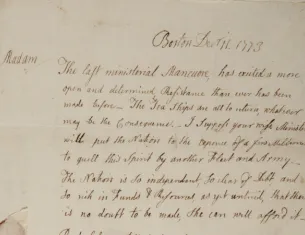 Boston Decr. 11. 1773
Madam
The last ministerial Maneuvre, has excited a more
open and determined Resistance than ever has been
made before — The Tea Ships are all to return, whatever
may be the Consequence. — I suppose your wise Minist
will put the Nation to the expence of a few Millions
to quell this Spirit by another Fleet and Army. —
The Nation is so independent, so clear of Debt and
so rich in Funds & Resources as yet untried, that there
is no doubt to be made, she can well afford it